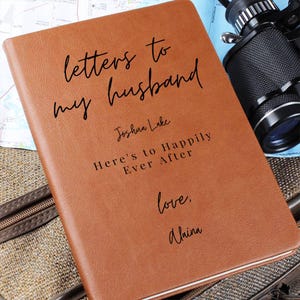 letters to
my husband
Joshua Luke
Here's to Happily
Ever After
love,
Alaina